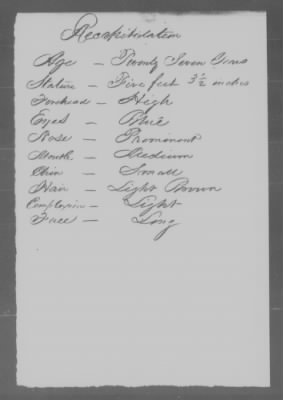 Recapitulation
Age — Twenty Seven Years
Stature — Five feet 3½ inches
Forehead — High
Eyes — Blue
Nose — Prominent
Mouth — Medium
Chin — Small
Hair — Light Brown
Complexion — Light
Face — Long